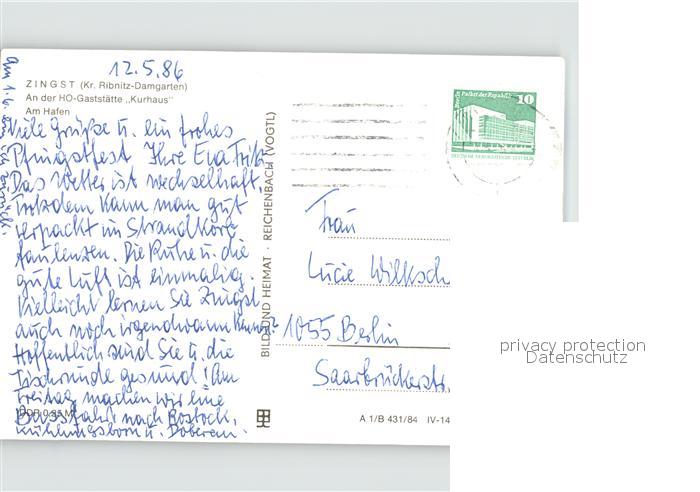 12.5.86
ZINGST (Kr. Ribnitz-Damgarten)
An der HO-Gaststätte „Kurhaus"
Am Hafen
Viele Grüße u. ein frohes
Pfingstfest Ihre Eva Fritz
Das Wetter ist wechselhaft,
trotzdem kann man gut
verpackt im Strandkorb
faulenzen. Die Ruhe u. die
gute Luft ist einmalig.
Vielleicht lernen Sie Zingst
auch noch irgendwann kennen?
Hoffentlich sind Sie u. die
Tischrunde gesund! Am
Freitag machen wir eine
Busfahrt nach Rostock,
Kühlungsborn u. Doberan.
DDR 0,25 M
Am 1.6. bin ich zurück.
BILD UND HEIMAT · REICHENBACH (VOGTL)
Berlin Palast der Republik 10
DEUTSCHE DEMOKRATISCHE REPUBLIK
Frau
Lucie Wilksch
1055 Berlin
Saarbrückerstr.
A 1/B 431/84 IV-14
privacy protection
Datenschutz